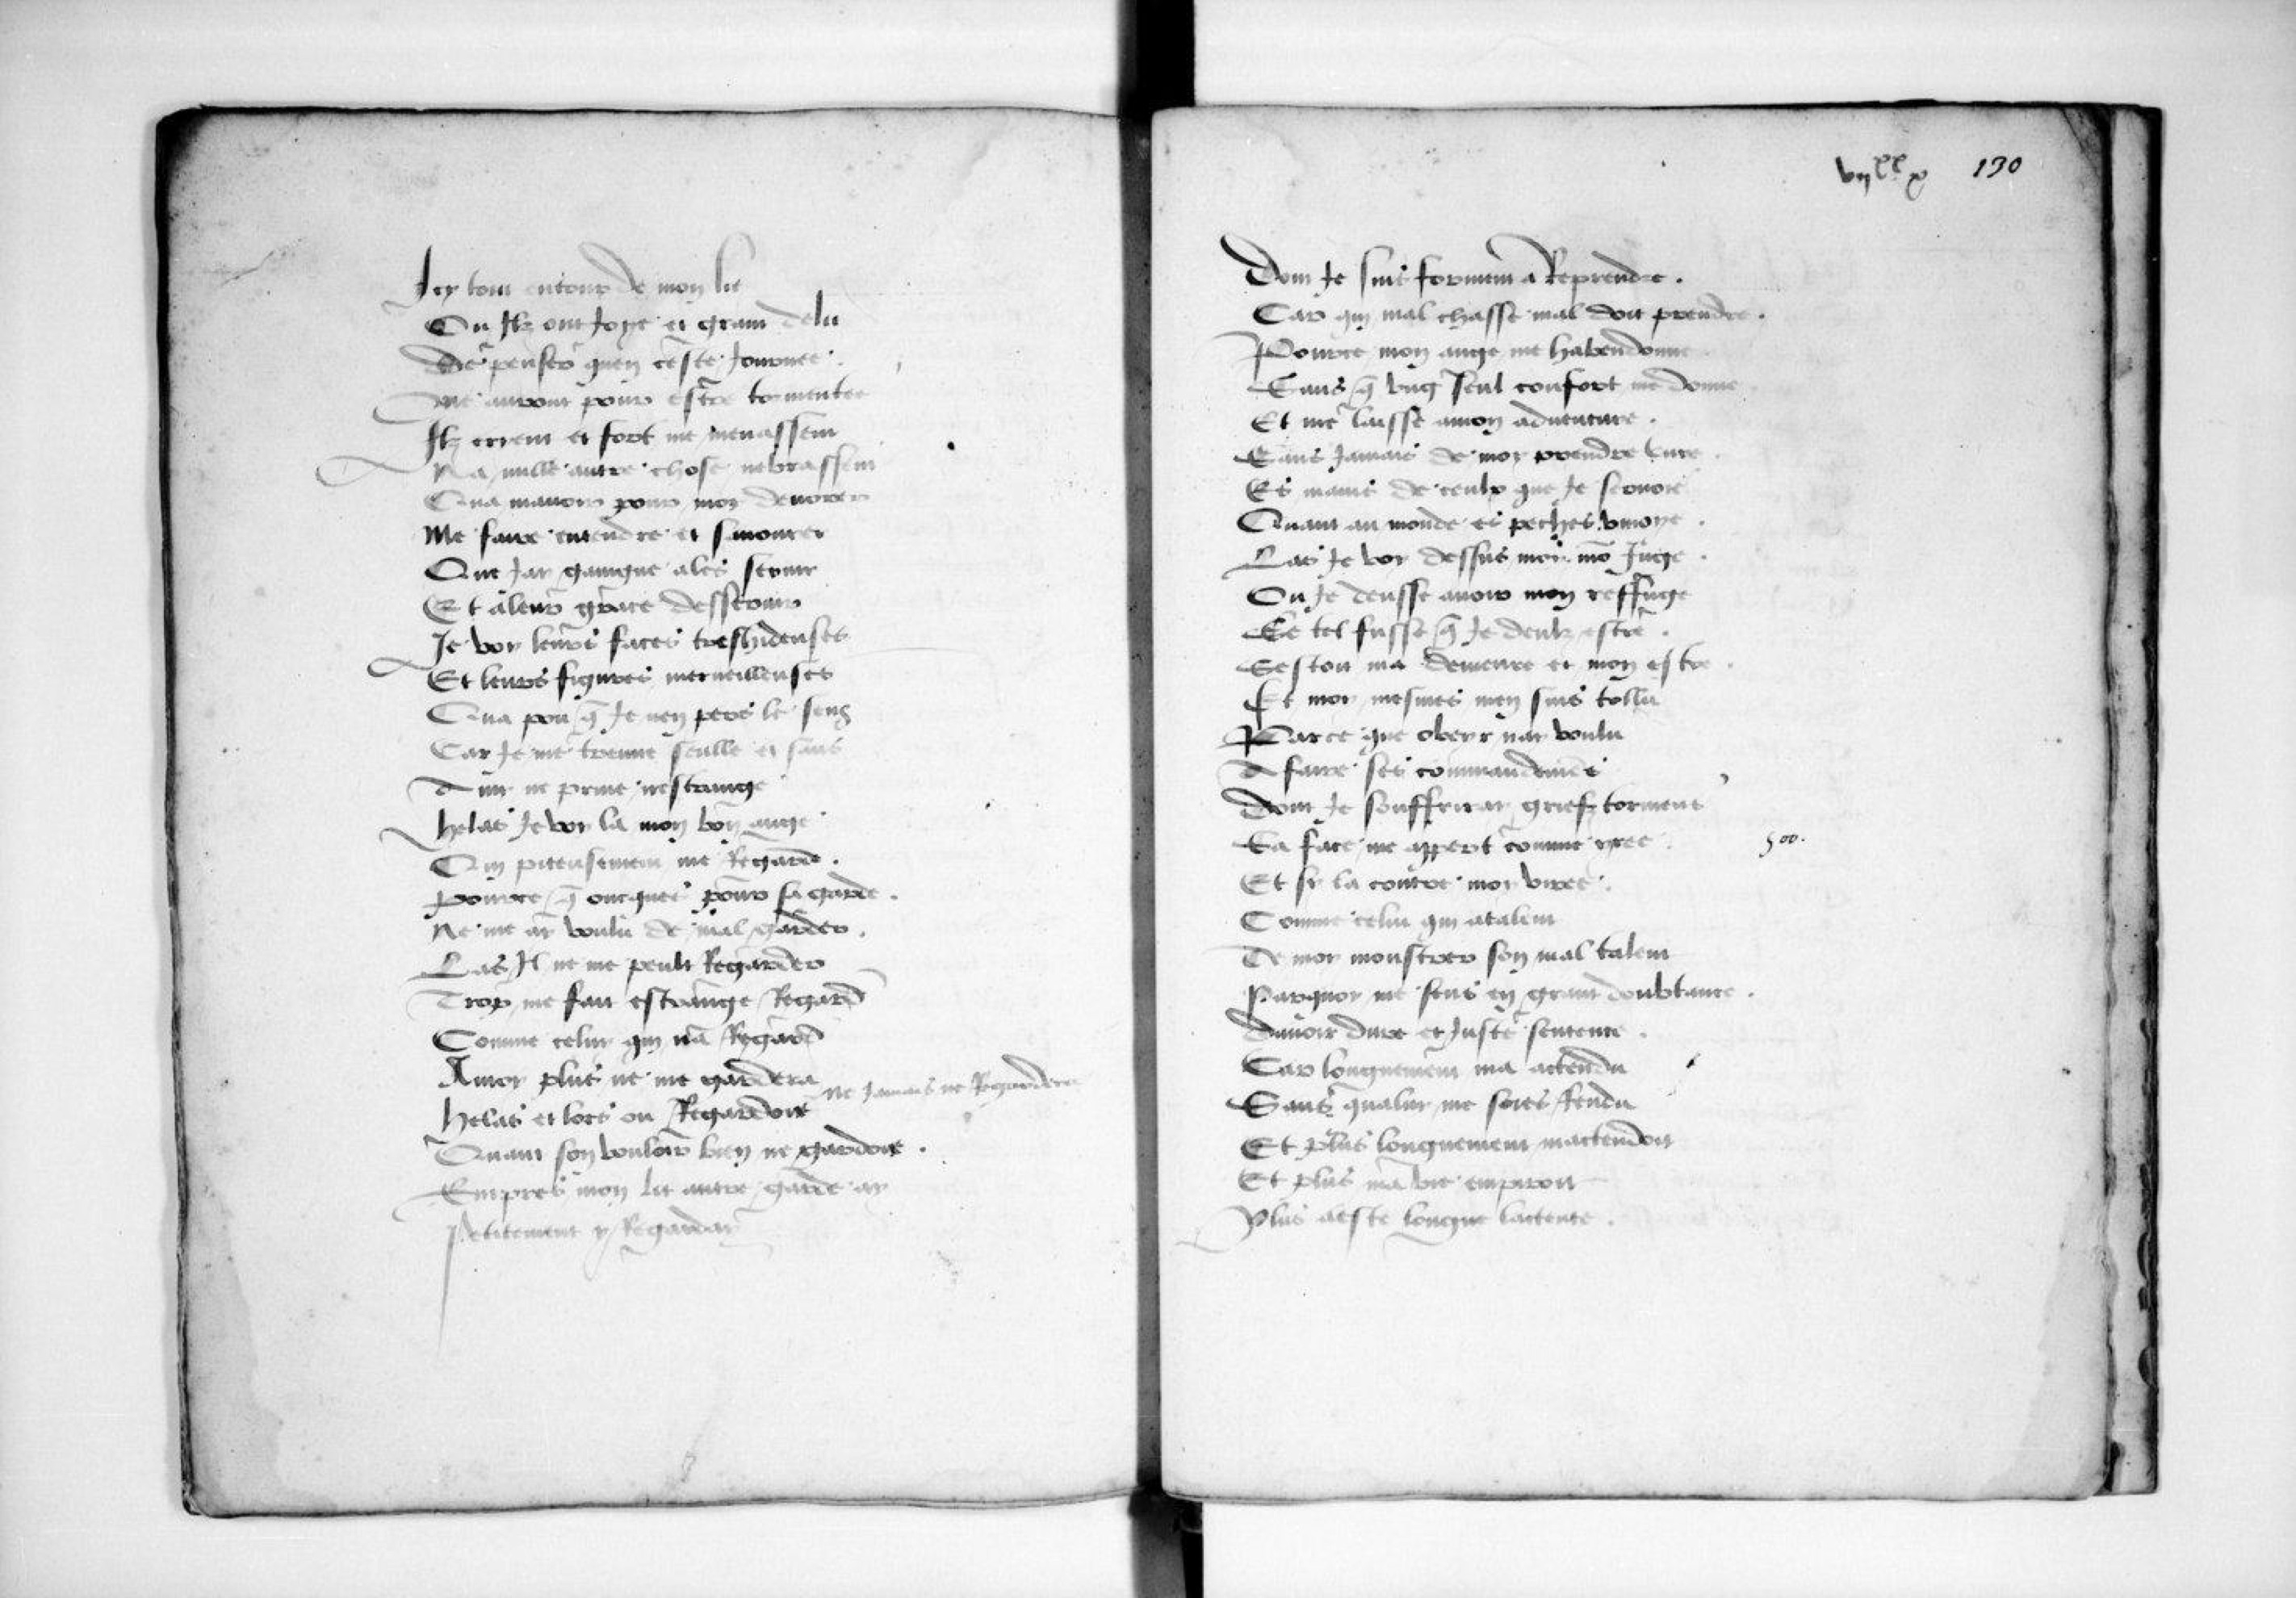 Icy tout entour de mon lit
Ou Ilz ont Joye et grant delit
De penser quen ceste Journee
Me auront pour estre tormentee
Ilz crient et fort me menassent
Na nulle autre chose nebrassent
Qua mauoir pour moy deuorer
Me faire entendre et sauourer
Que Jay gaingne ales seruir
Et aleur grace desseruir
Je voy leurs faces treshideuses
Et leurs figures merueilleuses
Qua pou q̄ Je nen pers le sens
Car Je me treuue seulle et sans
Amy ne priue nestrange
helas Je voy la mon bon ange
Qui piteusement me Regarde .
Pource q̄ oncques pour sa garde .
Ne me ay voulu de mal garder .
Las Il ne me peult Regarder
Trop me fait estrange Regard
Comme celuy qui na Regard
Amoy plus ne me gardera
ne Jamais ne Regardera
Helas et lors ou Regardoie
Quant son vouloir bien ne gardoie .
Empres mon lit autre garde ay
Petitement y Regarday
vijxx x 130
Dont Je suis forment a Reprendre .
Car qui mal chasse mal doit prendre .
Pource mon ange me habendonne
Sans q̄ vng seul confort me donne
Et me laisse amon aduenture .
Sans Jamais de moy prendre cure .
Es mains de ceulx que Je seruoie
Quant au monde es peches viuoye .
Las Je voy dessus moy mō Juge .
Ou Je deusse auoir mon reffuge
Se tel fusse q̄ Je deulz estre .
Cestoit ma demeure et mon estre .
Et moy mesmes men suis tollu
Parce que obeyr nay voulu
A faire ses commandemēs
Dont Je souffriray griefz tormens
Sa face me appert comme yree .
500.
Et sy la contre moy viree .
Comme celui qui atalent
De moy monstrer son mal talent
Parquoy me sens en grant doubtance .
Dauoir dure et Juste sentence .
Car longuement ma actendu
Sans qualuy me soies Rendu
Et plus longuement mactendoit
Et plus ma vie empiroit
Plus aeste longue lactente .